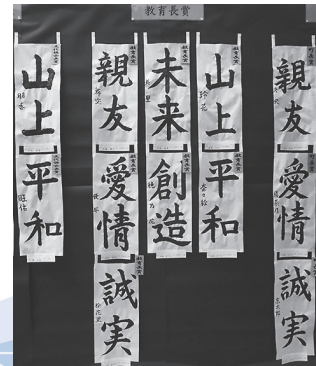 教育長賞
親友
愛情
誠実
山上
平和
未来
創造
親友
愛情
誠実
山上
平和